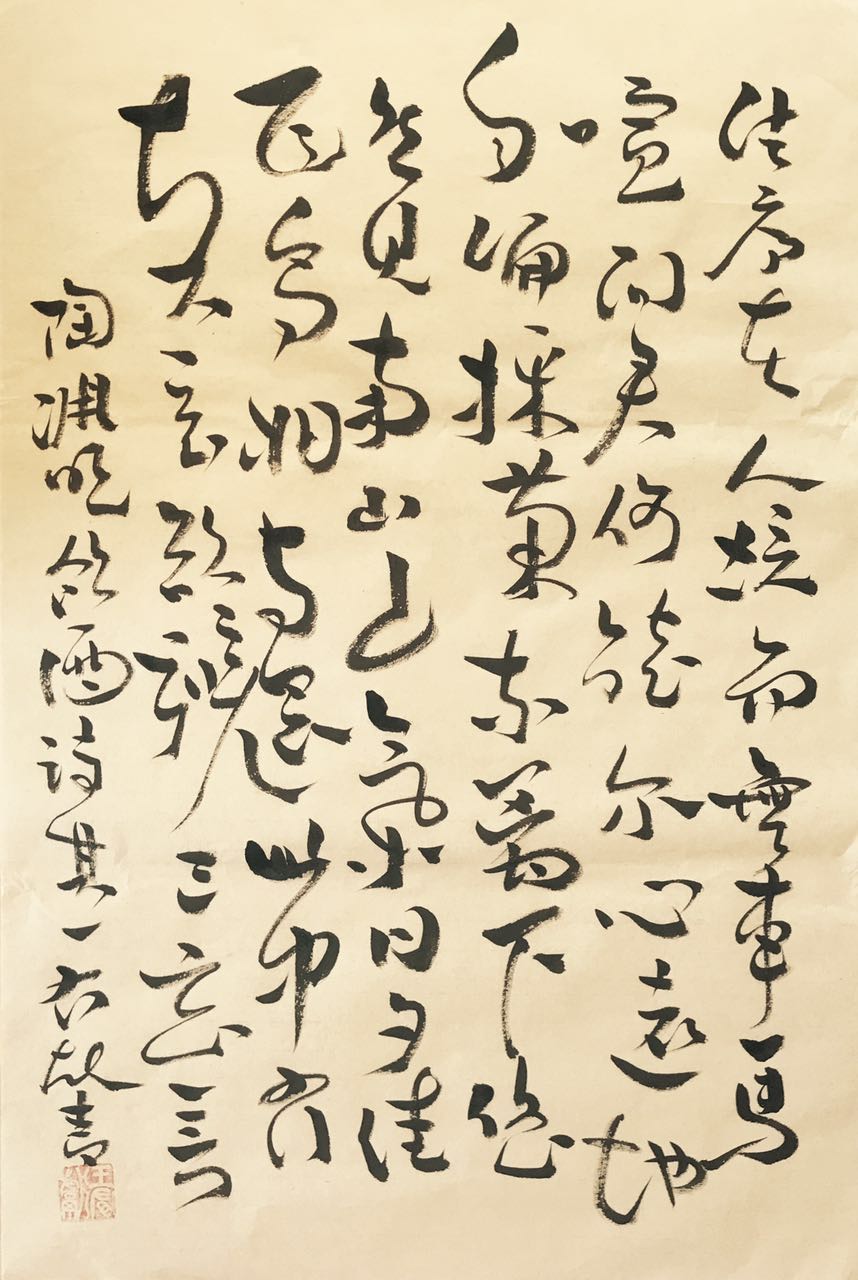 结庐在人境而無車馬
喧问君何能尔心遠地
自偏採菊东篱下悠
然見南山山氣日夕佳
飞鸟相与還此中有
真意欲辩已忘言
陶渊明饮酒诗其一 书